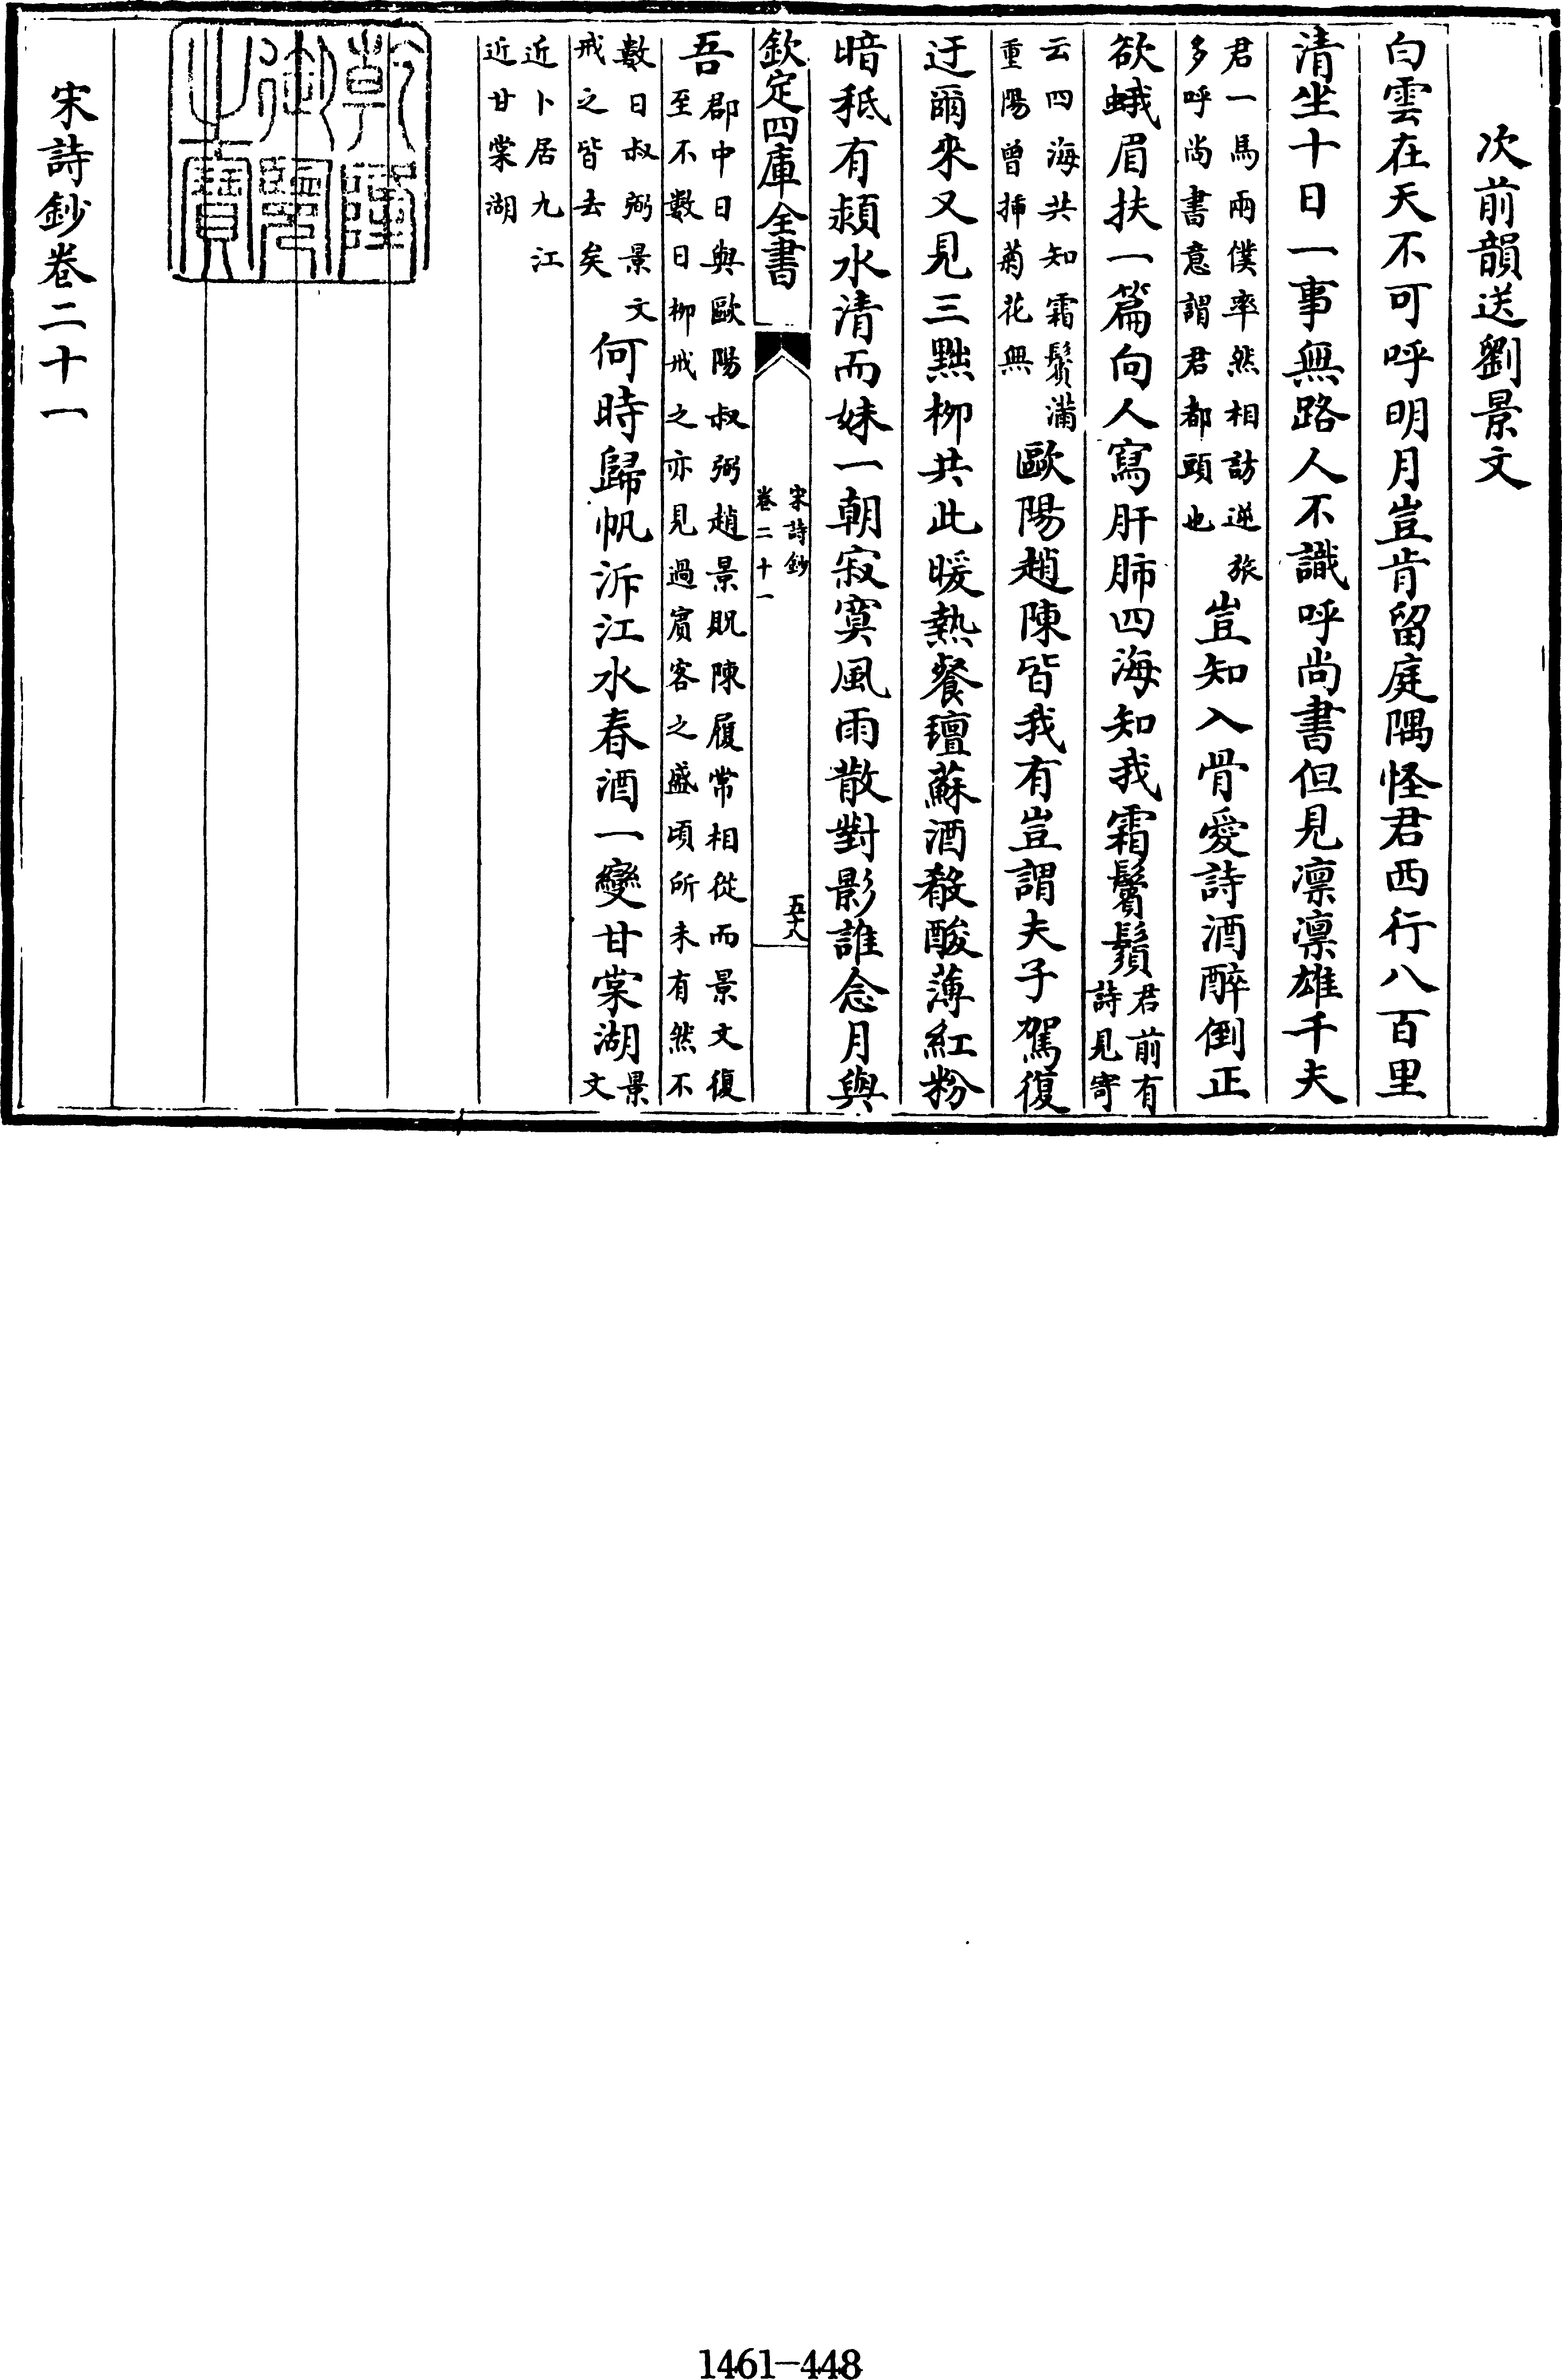 次前韻送劉景文
白雲在天不可呼明月豈肯留庭隅怪君西行八百里
清坐十日一事無路人不識呼尚書但見凛凛雄千夫
君一馬兩僕率然相訪逆旅
多呼尚書意謂君都頭也
豈知入骨愛詩酒醉倒正
欲蛾眉扶一篇向人寫肝肺四海知我霜鬢鬚
君前有
詩見寄
云四海共知霜鬢滿
重陽曾插菊花無
歐陽趙陳皆我有豈謂夫子駕復
迂爾來又見三黜柳共此暖熱餐氊蘇酒殽酸薄紅粉
暗秪有潁水清而姝一朝寂寞風雨散對影誰念月與
欽定四庫全書
宋詩鈔
卷二十一
五十八
吾
郡中日與歐陽叔弼趙景貺陳履常相從而景文復
至不數日柳戒之亦見過賓客之盛頃所未有然不
數日叔弼景文
戒之皆去矣
何時歸帆泝江水春酒一變甘棠湖
景
文
近卜居九江
近甘棠湖
乾隆
御覽
之寶
宋詩鈔卷二十一
1461-448